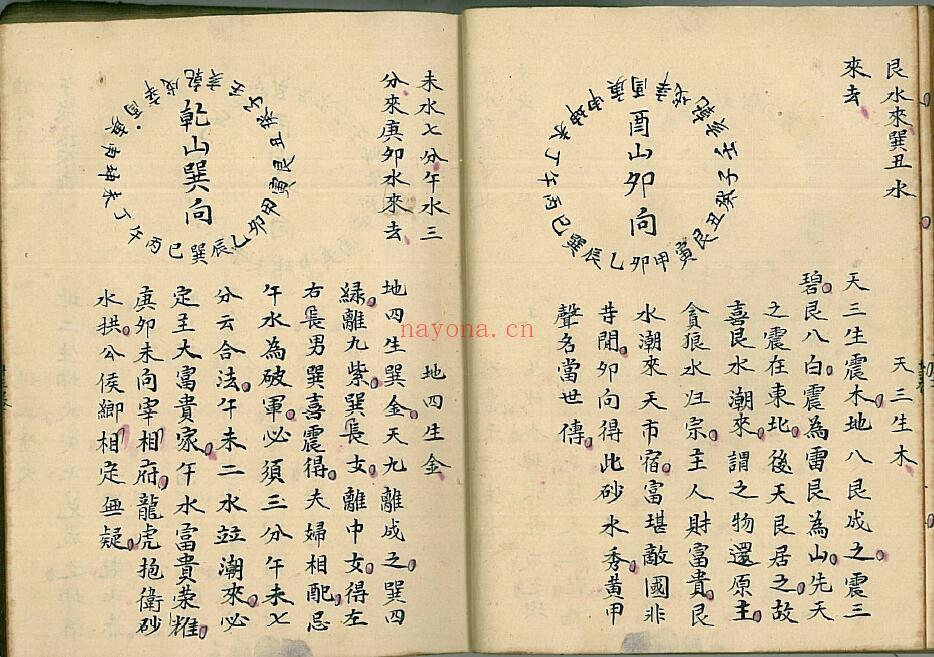 艮水來巽丑水
來去
酉山卯向
壬子癸丑艮寅甲卯乙辰巽巳丙午丁未坤申庚酉辛戌乾亥
天三生木
天三生震木地八艮成之震三
碧艮八白震為雷艮為山先天
之震在東北後天艮居之故
喜艮水潮來謂之物還原主
貪狼水归宗主人財富貴艮
水潮來天市宿富堪敵國非
等閒卯向得此砂水秀黃甲
聲名當世傳
未水七分午水三
分來庚卯水來去
乾山巽向
壬子癸丑艮寅甲卯乙辰巽巳丙午丁未坤申庚酉辛戌乾亥
地四生金
地四生巽金天九離成之巽四
綠離九紫巽長女離中女得左
右長男巽喜震得夫婦相配忌
午水為破軍必須三分午未七
分云合法午未二水竝潮來必
定主大富貴家午水富貴荣
庚卯未向宰相府龍虎抱衛砂
水拱公侯卿相定無疑
nayona.cn